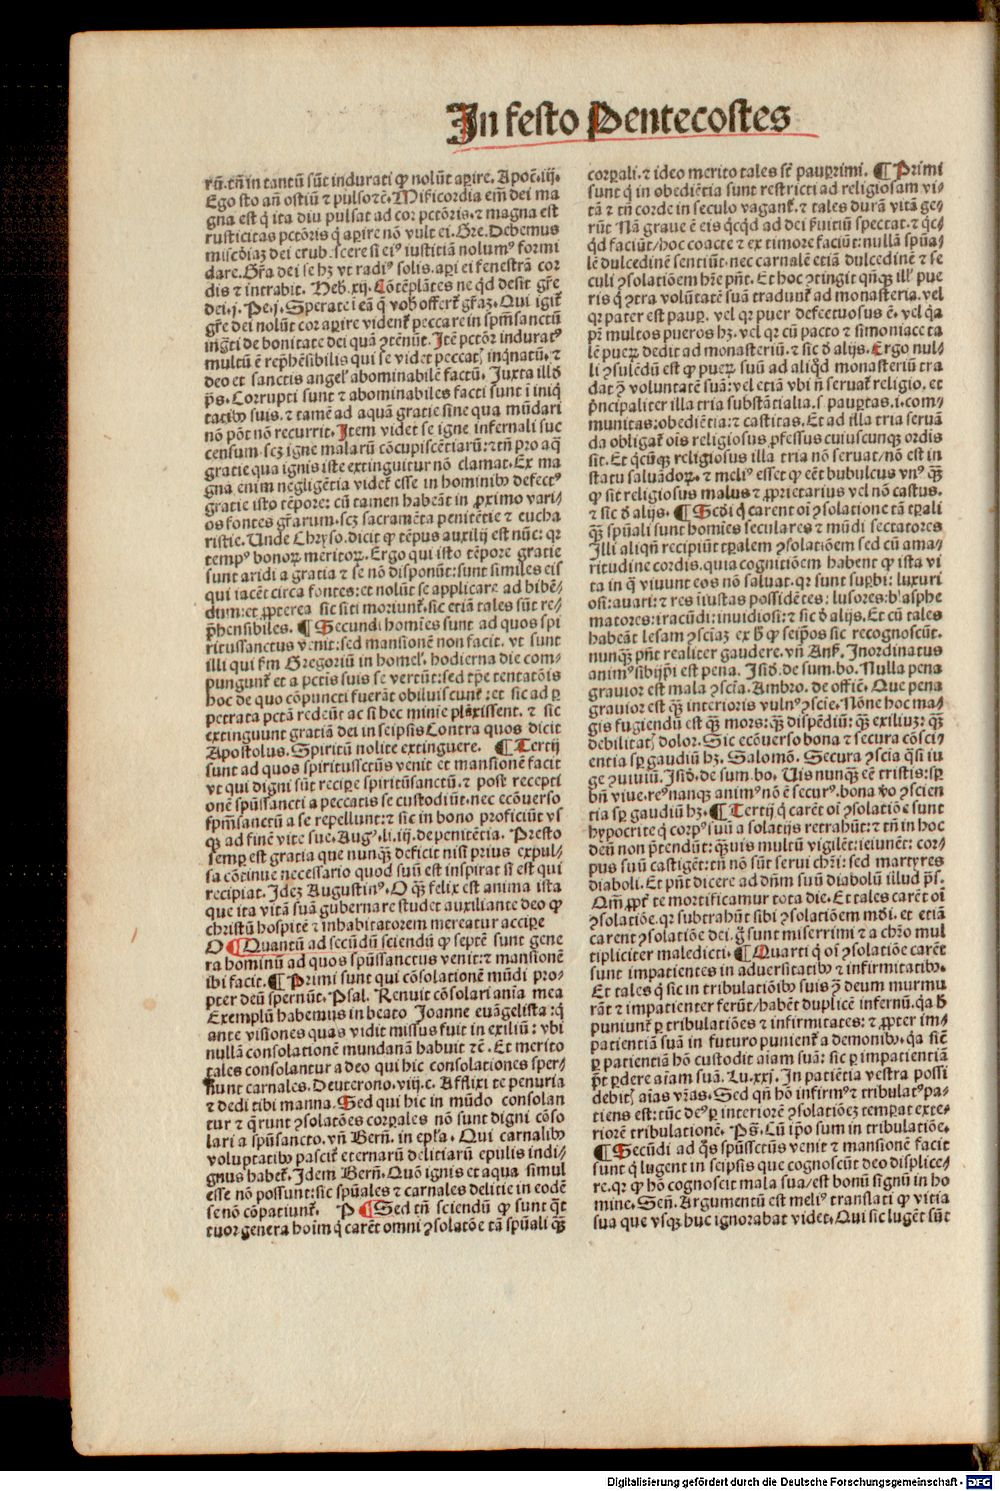 In festo Pentecostes
rũ. tñ in tantũ sũt indurati ꝙ nolũt aꝑire. Apoc̃. iij.
Ego sto añ ostiũ ⁊ pulso ⁊c̃. Mi\ricordia em̃ dei ma
gna est q̇ ita diu pulsat ad cor pctõris. ⁊ magna est
rusticitas pctõris q̇ aꝑire nõ vult ei. Gre. Debemus
miscðiaꝫ dei erubescere si eiꝰ iustitiã nolumꝰ formi
dare. Gr̃a dei se hꝫ vt radiꝰ solis. aꝑi ei fenestrã cor
dis ⁊ intrabit. Heb. xij. Cõtẽplãtes ne q̇d desit gr̃e
dei. j. Pe. j. Sperate ĩ eã q̃ vob̾ offert̃ gr̃aꝫ. Qui igit̃
gr̃e dei nolũt cor aꝑire vident̃ peccare in spm̃sanctũ
inq̃ti de bonitate dei quã ꝯtẽnũt. Itẽ pctõr induratꝰ
multũ ẽ rep̃hẽsibilis qui se videt peccat̾ inq̇natũ. ⁊
deo et sanctis angel̾ abominabilẽ factũ. Juxta illð
p̃s. Corrupti sunt ⁊ abominabiles facti sunt ĩ iniq̇
tatibꝰ suis. ⁊ tamẽ ad aquã gratie sine qua mũdari
nõ põt nõ recurrit. Item videt se igne infernali suc
censum. scꝫ igne malarũ cõcupiscẽtiarũ: ⁊ tñ pro aq̃
gratie qua ignis iste extinguitur nõ clamat. Ex ma
gna enim negligẽtia videt̃ esse in hominibꝰ defectꝰ
gratie isto tẽpore: cũ tamen habeãt in ꝓximo vari⸗
os fontes gr̃arum. scꝫ sacramẽta penitẽtie ⁊ eucha
ristie. Unde Chryso. dicit ꝙ tẽpus auxilij est nũc: qꝛ
tempꝰ bonoꝝ meritoꝝ. Ergo qui isto tẽpore gratie
sunt aridi a gratia ⁊ se nõ disponũt: sunt similes eis
qui iacẽt circa fontes: et nolũt se applicare ad bibẽ⸗
dum: et ꝓpterea sic siti moriunt̃. sic etiã tales sũt re⸗
p̃hensibiles. ¶ Secundi homĩes sunt ad quos spi
ritussanctus venit: sed mansionẽ non facit. vt sunt
illi qui ẜm Gregoriũ in homel̾. hodierna die com⸗
pungunt̃ et a pctis suis se vertũt: sed tp̃e tentatõis
hoc de quo cõpuncti fuerãt obliuiscunt̃: et sic ad ꝑ
petrata pctã redeũt ac si hec minĩe plãxissent. ⁊ sic
extinguunt gratiã dei in seipsis Contra quos dicit
Apostolus. Spiritũ nolite extinguere. ¶ Tertij
sunt ad quos spiritussctũs venit et mansionẽ facit
vt qui digni sũt reciꝑe spiritũsanctũ. ⁊ post recepti
onẽ spũssancti a peccatis se custodiũt. nec ecõuerso
spm̃sanctũ a se repellunt: ⁊ sic in bono proficiũt vs
qꝫ ad finẽ vite sue. Augꝰ. li. iij. de penitẽtia. Presto
semꝑ est gratia que nunqꝫ̃ deficit nisi prius expul⸗
sa cõtinue necessario quod suũ est inspirat si est qui
recipiat. Ideꝫ Augustinꝰ. O qꝫ̃ felix est anima ista
que ita vitã suã gubernare studet auxiliante deo ꝙ
christũ hospitẽ ⁊ inhabitatorem mereatur acciꝑe
O ¶ Quantũ ad secũdũ sciendũ ꝙ septẽ sunt gene
ra hominũ ad quos spũssanctus venit: ⁊ mansionẽ
ibi facit. ¶ Primi sunt qui cõsolationẽ mũdi pro⸗
pter deũ spernũt. Psal. Renuit cõsolari anĩa mea
Exemplũ habemus in beato Joanne euãgelista: q̇
ante visiones quas vidit missus fuit in exiliũ: vbi
nullã consolationẽ mundanã habuit ⁊c̃. Et merito
tales consolantur a deo qui hic consolationes sper⸗
nunt carnales. Deuterono. viij. c. Afflixi te penuria
⁊ dedi tibi manna. Sed qui hic in mũdo consolan
tur ⁊ q̃runt ꝯsolatões corꝑales nõ sunt digni cõso
lari a spũsancto. vñ Berñ. in epl̃a. Qui carnalibꝰ
voluptatibꝰ pascit̃ eternarũ delitiarũ epulis indi⸗
gnus habet̃. Idem Berñ. Quõ ignis et aqua simul
esse nõ possunt: sic spũales ⁊ carnales delitie in eodẽ
se nõ cõpatiunt̃. P ¶ Sed tñ sciendũ ꝙ sunt q̃t
tuor genera hoĩm q̇ carẽt omni ꝯsolatõe tã spũali qꝫ̃
corꝑali. ⁊ ideo merito tales sẽt pauꝑrimi. ¶ Primi
sunt q̇ in obediẽtia sunt restricti ad religiosam vi⸗
tã ⁊ tñ corde in seculo vagant̃. ⁊ tales durã vitã ge⸗
rũt Nã graue ẽ eis q̇cq̇d ad dei ẜuitiũ spectat. ⁊ q̇c⸗
q̇d faciũt/ hoc coacte ⁊ ex timore faciũt: nullã spũa⸗
lẽ dulcedinẽ sentiũt. nec carnalẽ etiã dulcedinẽ ⁊ se
culi ꝯsolatiõem hr̃e pñt. Et hoc ꝯtingit qñqꝫ ill̾ pue
ris q̇ ꝯtra volũtatẽ suã tradunt̃ ad monasteria. vel
qꝛ pater est pauꝑ. vel qꝛ puer defectuosus ẽ. vel q̃a
pr̃ multos pueros hꝫ. vel qꝛ cũ pacto ⁊ simoniace ta
lẽ pueꝝ dedit ad monasteriũ. ⁊ sic ð alijs. Ergo nul⸗
li ꝯsulẽdũ est ꝙ pueꝝ suũ ad aliq̇ð monasteriũ tra
dat ꝯ̃ voluntatẽ suã: vel etiã vbi ñ seruat̃ religio. et
p̃ncipaliter illa tria substãtialia. s. pauꝑtas. i. com⸗
munitas: obediẽtia: ⁊ castitas. Et ad illa tria seruã
da obligat̃ oĩs religiosus ꝓfessus cuiuscunqꝫ ordĩs
sit. Et q̇cũqꝫ religiosus illa tria nõ seruat/ nõ est in
statu saluãdoꝝ. ⁊ meliꝰ esset ꝙ eẽt bubulcus vnꝰ qꝫ̃
ꝙ sit religiosus malus ⁊ ꝓprietarius vel nõ castus.
⁊ sic ð alijs. ¶ Scði q̇ carent oĩ ꝯsolatione tã tꝑali
qꝫ̃ spũali sunt homĩes seculares ⁊ mũdi sectatores
Illi aliqñ recipiũt tꝑalem ꝯsolatiõem sed cũ ama⸗
ritudine cordis. quia cognitiõem habent ꝙ ista vi
ta in q̃ viuunt eos nõ saluat. qꝛ sunt suꝑbi: luxuri
osi: auari: ⁊ res iniustas possidẽtes: lusores: blasphe
matores: iracũdi: inuidiosi: ⁊ sic ð alijs. Et cũ tales
habeãt lesam ꝯsciaꝫ ex h̾ ꝙ seip̃os sic recognoscũt.
nunqꝫ̃ pñt realiter gaudere. vñ Anß. Inordinatus
animꝰ sibijp̃i est pena. Isið. de sum. bo. Nulla pena
grauior est mala ꝯscĩa. Ambro. de offic̃. Que pena
grauior est qꝫ̃ interioris vulnꝰ ꝯscĩe. Nõne hoc ma⸗
gis fugiendũ est qꝫ̃ mors: qꝫ̃ dispẽdiũ: qꝫ̃ exiliuꝫ: qꝫ̃
debilitat̾ dolor. Sic ecõuerso bona ⁊ secura cõsci⸗
entia sꝑ gaudiũ hꝫ. Salomõ. Secura ꝯscia q̃si iu
ge ꝯuiuiũ. Isið. de sum. bo. Uis nunqꝫ̃ eẽ tristis: sꝑ
bñ viue. reꝰ nanqꝫ animꝰ nõ ẽ securꝰ. bona v̾o ꝯscien
tia sꝑ gaudiũ hꝫ. ¶ Tertij q̇ carẽt oĩ ꝯsolatiõe sunt
hypocrite q̇ corpꝰ suũ a solatijs retrahũt: ⁊ tñ in hoc
deũ non p̃tendũt: qꝫ̃uis multũ vigilẽt: ieiunẽt: cor⸗
pus suũ castigẽt: tñ nõ sũt serui chr̃i: sed martyres
diaboli. Et pñt dicere ad dñm suũ diabolũ illud p̃s.
Qm̃ ꝓpt̃ te mortificamur tota die. Et tales carẽt oĩ
ꝯsolatiõe. qꝛ subtrahũt sibi ꝯsolatiõem mũdi. et etiã
carent ꝯsolatiõe dei. g̃ sunt miserrimi ⁊ a chr̃o mul
tipliciter maledicti. ¶ Quarti q̇ oĩ ꝯsolatiõe carẽt
sunt impatientes in aduersitatibꝰ ⁊ infirmitatibꝰ.
Et tales q̇ sic in tribulatiõibꝰ suis ꝯ̃ deum murmu
rãt ⁊ impatienter ferũt/ habẽt duplicẽ infernũ. q̃a h̾
puniunt̃ ꝑ tribulatiões ⁊ infirmitates: ⁊ ꝓpter im⸗
patientiã suã in futuro punient̃ a demonibꝰ. q̃a sic̃
ꝑ patientiã hõ custodit aĩam suã: sic ꝑ impatientiã
p̃t ꝑdere aĩam suã. Lu. xxj. In patiẽtia vestra possi
debit̾ aĩas vr̃as. Sed qñ hõ infirmꝰ ⁊ tribulatꝰ pa⸗
tiens est: tũc deꝰ ꝑ interiorẽ ꝯsolatiõeꝫ temꝑat exte⸗
riorẽ tribulationẽ. P̃s. Cũ ip̃o sum in tribulatiõe.
¶ Secũdi ad q̊s spũssctũs venit ⁊ mansionẽ facit
sunt q̇ lugent in seipsis que cognoscũt deo displice⸗
re. qꝛ ꝙ hõ cognoscit mala sua/ est bonũ signũ in ho
mine. Señ. Argumentũ est meliꝰ translati ꝙ vitia
sua que vsqꝫ huc ignorabat videt. Qui sic lugẽt sũt
Digitalisierung gefördert durch die Deutsche Forschungsgemeinschaft - DFG